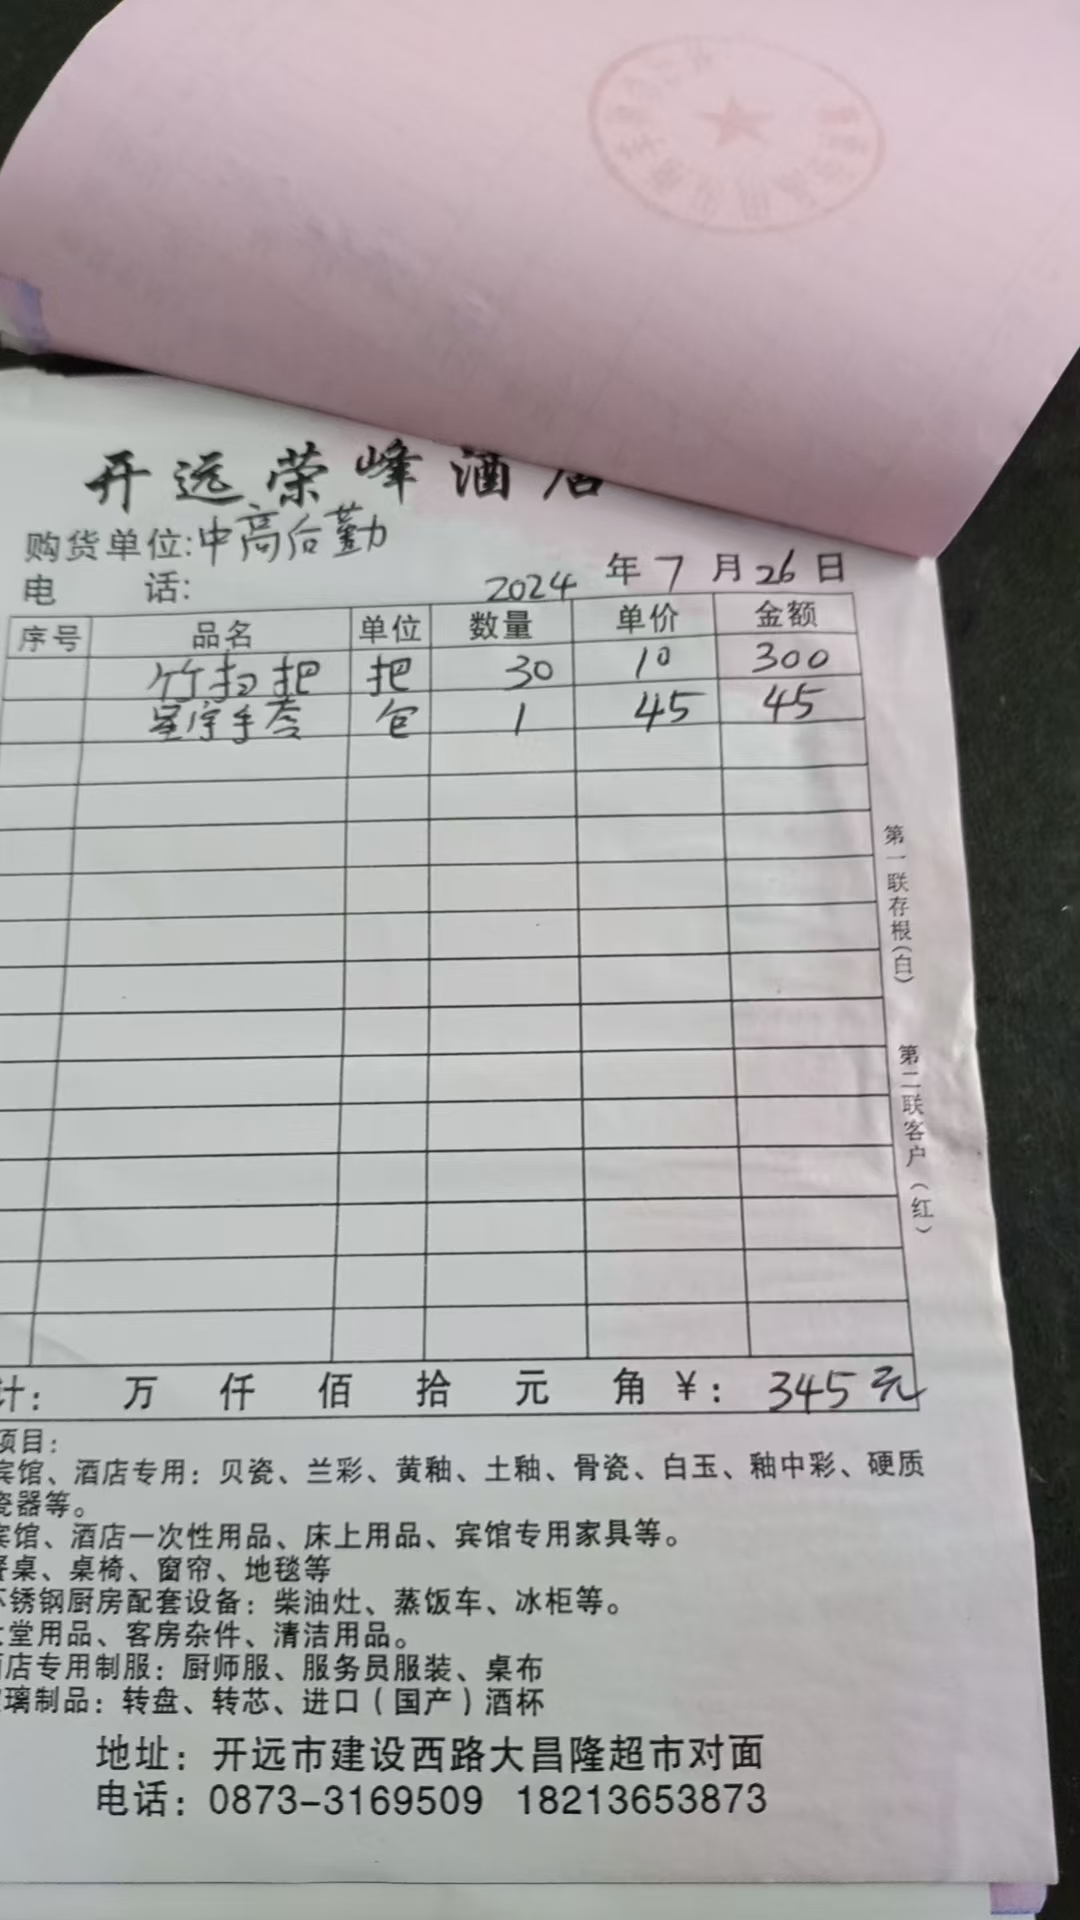 开远荣峰酒店
购货单位:中高后勤
电 话: 2024 年 7 月 26 日
序号 品名 单位 数量 单价 金额
竹扫把 把 30 10 300
星宇手套 包 1 45 45
计: 万 仟 佰 拾 元 角 ¥: 345元
第一联存根(白)
第二联客户(红)
项目:
宾馆、酒店专用: 贝瓷、兰彩、黄釉、土釉、骨瓷、白玉、釉中彩、硬质
瓷器等。
宾馆、酒店一次性用品、床上用品、宾馆专用家具等。
餐桌、桌椅、窗帘、地毯等
不锈钢厨房配套设备: 柴油灶、蒸饭车、冰柜等。
堂用品、客房杂件、清洁用品。
酒店专用制服: 厨师服、服务员服装、桌布
玻璃制品: 转盘、转芯、进口(国产)酒杯
地址: 开远市建设西路大昌隆超市对面
电话: 0873-3169509 18213653873